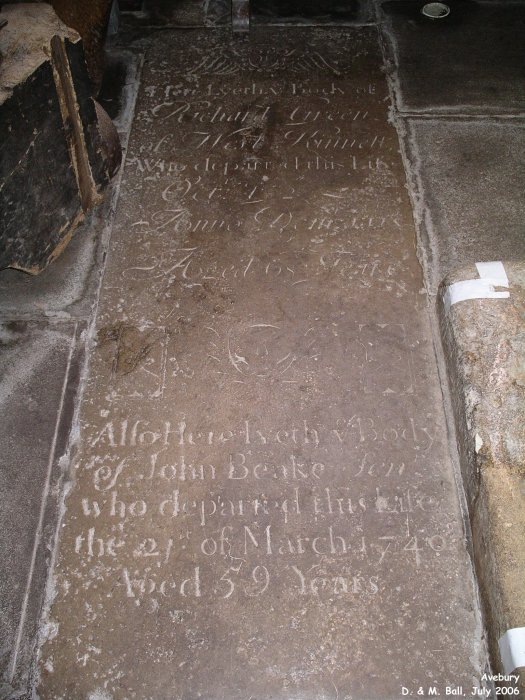 Here Lyeth yͤ Body of
Richard Green
of West Kennett
who departed this Life
Oct
Anno Domini
Aged 68 Years
Also Here Lyeth yͤ Body
of John Beake Sen
who departed this Life
the 21st of March 1740
Aged 59 Years
Avebury
D. & M. Ball, July 2006